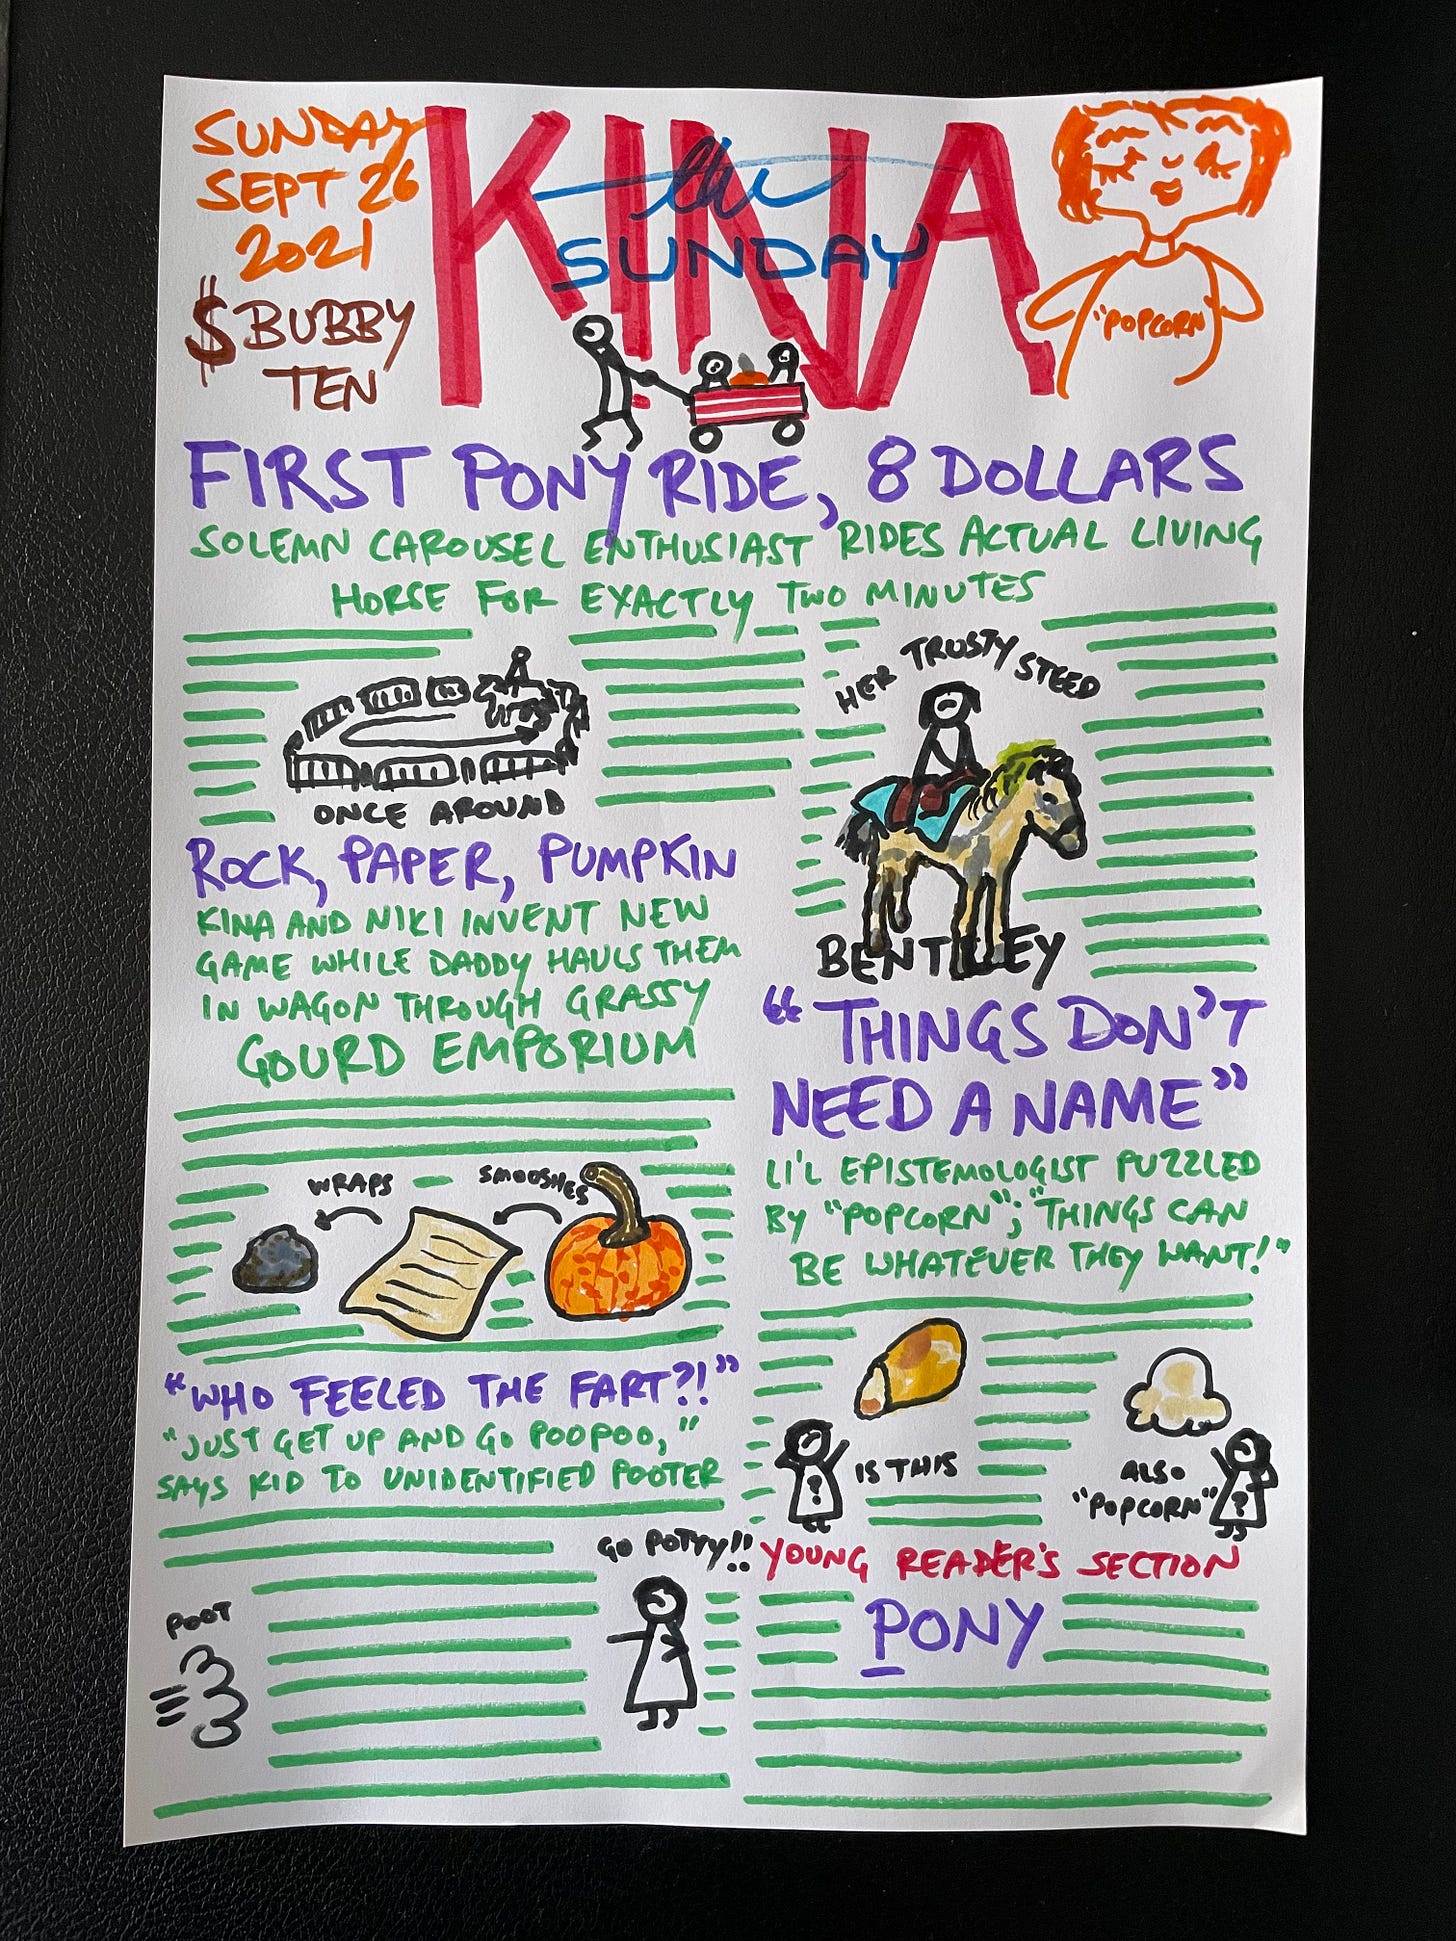 SUNDAY
SEPT 26
2021
$BUBBY
TEN
KINA
the
SUNDAY
"POPCORN"
FIRST PONY RIDE, 8 DOLLARS
SOLEMN CAROUSEL ENTHUSIAST RIDES ACTUAL LIVING
HORSE FOR EXACTLY TWO MINUTES
ONCE AROUND
HER TRUSTY STEED
BENTLEY
ROCK, PAPER, PUMPKIN
KINA AND NIKI INVENT NEW
GAME WHILE DADDY HAULS THEM
IN WAGON THROUGH GRASSY
GOURD EMPORIUM
WRAPS
SMOOSHES
"WHO FEELED THE FART?!"
"JUST GET UP AND GO POOPOO,"
SAYS KID TO UNIDENTIFIED POOTER
GO POTTY!!
POOT
"THINGS DON'T
NEED A NAME"
LI'L EPISTEMOLOGIST PUZZLED
BY "POPCORN"; "THINGS CAN
BE WHATEVER THEY WANT!"
?
IS THIS
ALSO
"POPCORN"
?
YOUNG READER'S SECTION
PONY